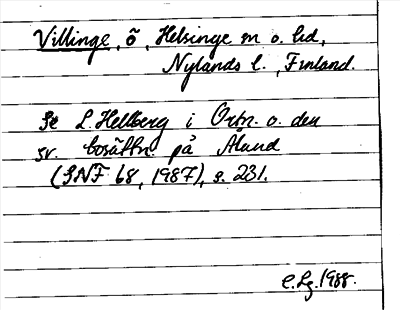 Villinge, ö, Helsinge sn o. hd,
Nylands l., Finland.
Se L. Hellberg i Ortn. o. den
sv. bosättn. på Åland
(SNF 68, 1987), s. 231.
C.Lg. 1988.